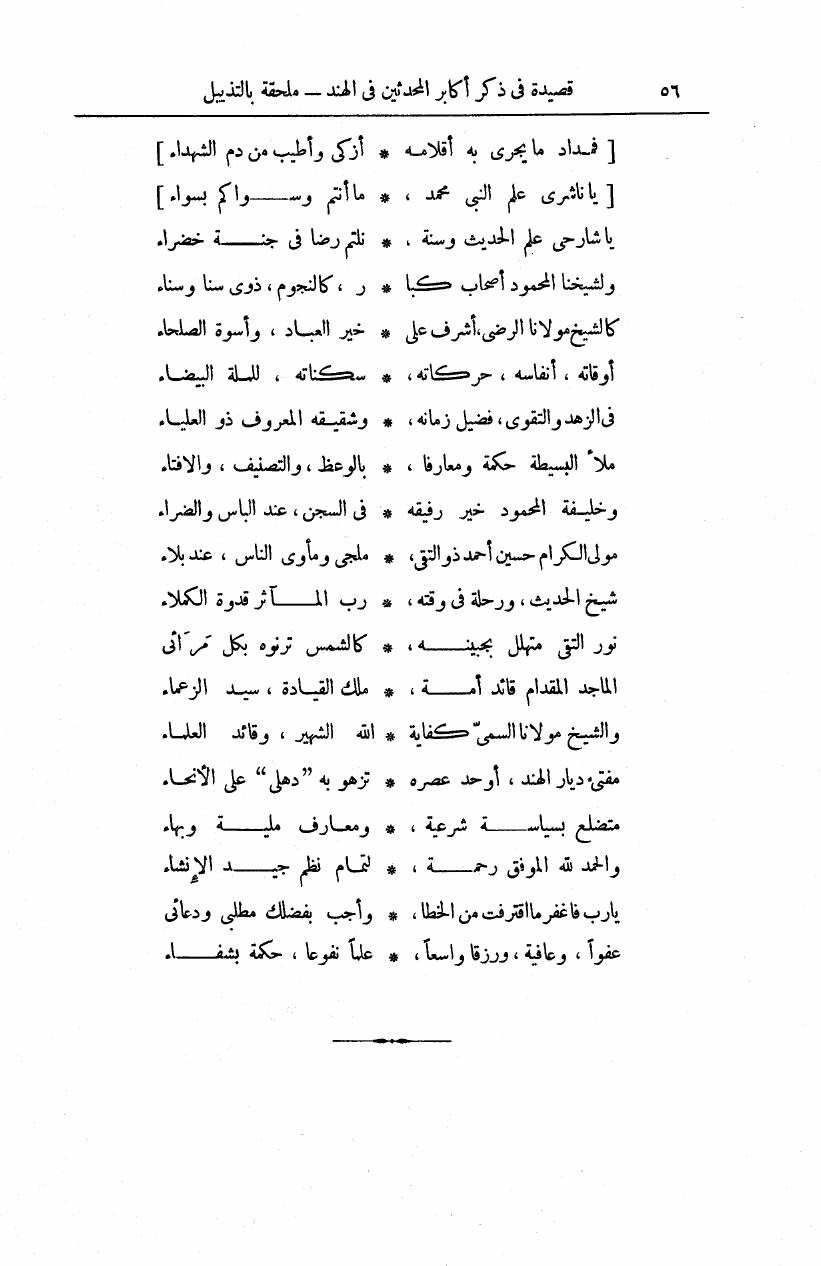 ٥٦ قصيدة فى ذكر أكابر المحدثين فى الهند — ملحقة بالتذييل
[ فمداد ما يجرى به أقلامه * أزكى وأطيب من دم الشهداء ]
[ يا ناشرى علم النبى محمد ، * ما أنتم وسواكم بسواء ]
يا شارحى علم الحديث وسنة ، * نلتم رضا فى جنة خضراء
ولشيخنا المحمود أصحاب كبا * ر ، كالنجوم ، ذوى سنا وسناء
كالشيخ مولانا الرضى، أشرف على * خير العباد ، وأسوة الصلحاء
أوقاته ، أنفاسه ، حركاته، * سكناته ، للملة البيضاء
فى الزهد والتقوى، فضيل زمانه، * وشقيقه المعروف ذو العلياء
ملأ البسيطة حكمة ومعارفا ، * بالوعظ ، والتصنيف ، والافتاء
وخليفة المحمود خير رفيقه * فى السجن ، عند الباس والضراء
مولى الكرام حسين أحمد ذو التقى، * ملجى ومأوى الناس ، عند بلاء
شيخ الحديث، ورحلة فى وقته، * رب المآثر قدوة الكملاء
نور التقى متهلل بجبينه ، * كالشمس ترنوه بكل مَرَائى
الماجد المقدام قائد أمة ، * ملك القيادة ، سيد الزعماء
والشيخ مولانا السمىّ كفاية * الله الشهير ، وقائد العلماء
مفتىء ديار الهند ، أوحد عصره * تزهو به ”دهلى“ على الأنحاء
متضلع بسياسة شرعية ، * ومعارف ملية وبهاء
والحمد لله الموفق رحمة ، * لتمام نظم جيد الإنشاء
يارب فاغفر ما اقترفت من الخطا، * وأجب بفضلك مطلبى ودعائى
عفواً ، وعافية ، ورزقا واسعاً، * علماً نفوعا ، حكمة بشفاء